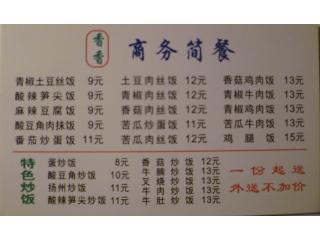 香香 商务简餐
青椒土豆丝饭 9元 土豆肉丝饭 12元 香菇鸡肉饭 13元
酸辣笋尖饭 9元 青椒肉丝饭 12元 青椒牛肉饭 13元
麻辣豆腐饭 9元 香菇肉丝饭 12元 青椒鸡肉饭 13元
酸豆角肉抹饭 9元 苦瓜炒蛋饭 11元 苦瓜牛肉饭 13元
番茄炒蛋饭 11元 苦瓜肉丝饭 12元 鸡腿饭 15元
特色炒饭
蛋炒饭 8元 香菇炒饭 12元
酸豆角炒饭 10元 牛腩炒饭 13元
扬州炒饭 11元 叉烧炒饭 13元
酸辣笋尖炒饭 11元 牛肉炒饭 13元
牛肚炒饭 13元
一份起送
外送不加价